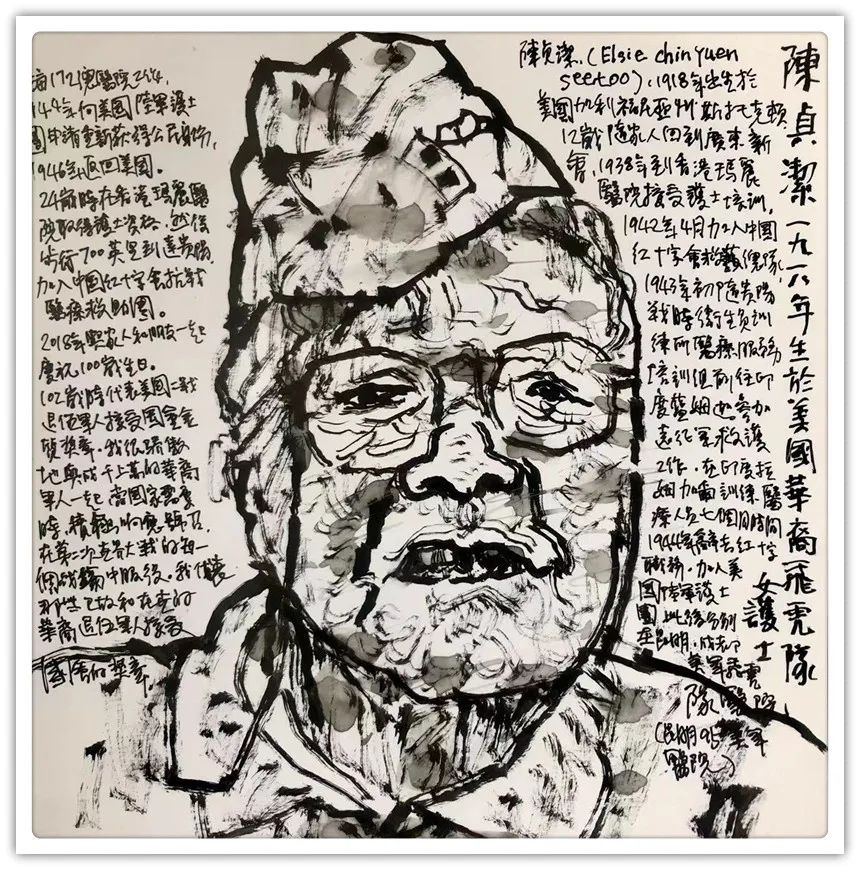 陳貞潔一九一八年生於美國華裔飛虎隊
女護士
陳貞潔，(Elsie chin yuen
seetoo)，1918年出生於
美國加利福尼亞州斯托克賴
12歲隨家人回到廣東新
會，1938年到香港瑪麗
醫院接受護士培訓，
1942年4月加入中國
紅十字會救護總隊
1943年初隨貴陽
戰時衛生員訓
練所醫療服務
培訓組前往印
度藍姆迦參加
遠征軍救護
工作，在印度拉
姆加爾訓練醫
療人員七個月時間
1944年辭去紅十字
職務，加入美
國陸軍護士
團 此後分別
在昆明，成都
美軍飛虎
隊醫院，
(昆明95美軍
醫院)
172 醫院工作，
年向美國陸軍護士
團申請重新獲得公民身份，
1946年返回美國。
24歲時在香港瑪麗醫
院取得護士資格，然後
步行700英里到達貴陽
加入中國紅十字會抗戰
醫療救助團。
2018年與家人和朋友一起
慶祝100歲生日。
102歲時代表美國二戰
退伍軍人接受國會金
質獎章，我很驕傲
地與成千上萬的華裔
軍人一起 當國家需要
時，積極响應號召，
在第二次世界大戰的每一
個戰場中服役，我代表
那些已故和在世的
華裔退伍軍人接受
國會的獎章。